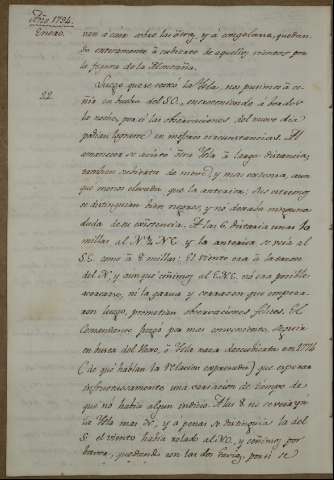 Año 1794.
Enero.
van á caer sobre las otras, y á congelarse, quedan-
do enteramente á cubierto de aquellos vientos por
la figura de la Montaña.
Luego que se corrió la Ysla, nos pusimos á ce-
22
ñir en vuelta del SO, encaminando á bordos
la noche, por si las observaciones del nuevo dia
podian lograrse en mejores circunstancias. Al
amanecer se avistó otra Ysla á larga distancia,
tambien cubierta de nieve, y mas extensa, aun
que menos elevada que la anterior; sus extremos
se distinguian bien negros, y no dexaba ninguna
duda de su existencia. A las 6 distaria unas 12
millas al N¼NE y la anterior se veia al
SE como á 8 millas: El viento era á la sazon
del N, y aunque ceñimos al ENE no era posible
acercarse, ni la garua y cerrazon que empeza-
ron luego, prometian observaciones felices. El
Comandante juzgó por mas conveniente seguir
en busca del Vaxo, ó Ysla nueva descubierta en 1774
(de que hablan la relacion expresada) que esperar
infructuosamente una variacion de tiempo de
que no habia algun indicio. A las 8 no se veia yá
la Ysla mas N, y apenas se distinguia la del
S: el viento habia rolado al NO, y ceñimos por
babor, quedando con las dos Gavias, por si se